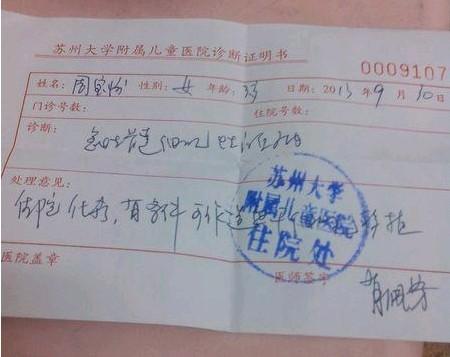 苏州大学附属儿童医院诊断证明书
0009107
姓名: 周宝怡 性别: 女 年龄: 日期: 2013年9月10日
门诊号数: 住院号数:
诊断:
急性
处理意见:
住院化疗,有条件可作造血干细胞移植
苏州大学
附属儿童医院
住院处
医院盖章
医师签字